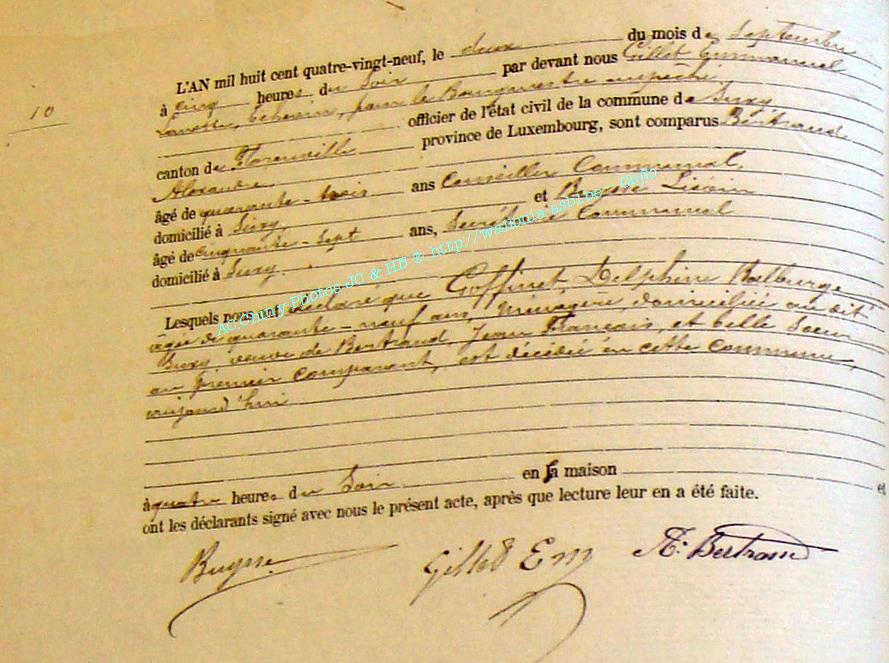 10
L'AN mil huit cent quatre-vingt-neuf, le deux du mois de Septembre
à cinq heures du Soir par devant nous Gillet Emmanuel
Echevin, pour le Bourgmestre empêché
officier de l'état civil de la commune de Suxy
canton de Florenville province de Luxembourg, sont comparus Bertrand
Alexandre
âgé de quarante-trois ans Conseiller Communal,
domicilié à Suxy, et Buysse Liévin
âgé de cinquante-sept ans, Secrétaire Communal
domicilié à Suxy.
Lesquels nous ont déclaré que Goffinet, Delphine Walburge
âgée de quarante-neuf ans, Ménagère, domiciliée au dit
Suxy veuve de Bertrand, Jean François, et belle Soeur
au premier comparant, est décédée en cette commune,
aujourd'hui
à quatre heures du Soir en sa maison et
ont les déclarants signé avec nous le présent acte, après que lecture leur en a été faite.
Buysse Gillet Em A. Bertrand
AC Chiny Photos JC & HB © http://wallonia.asbl